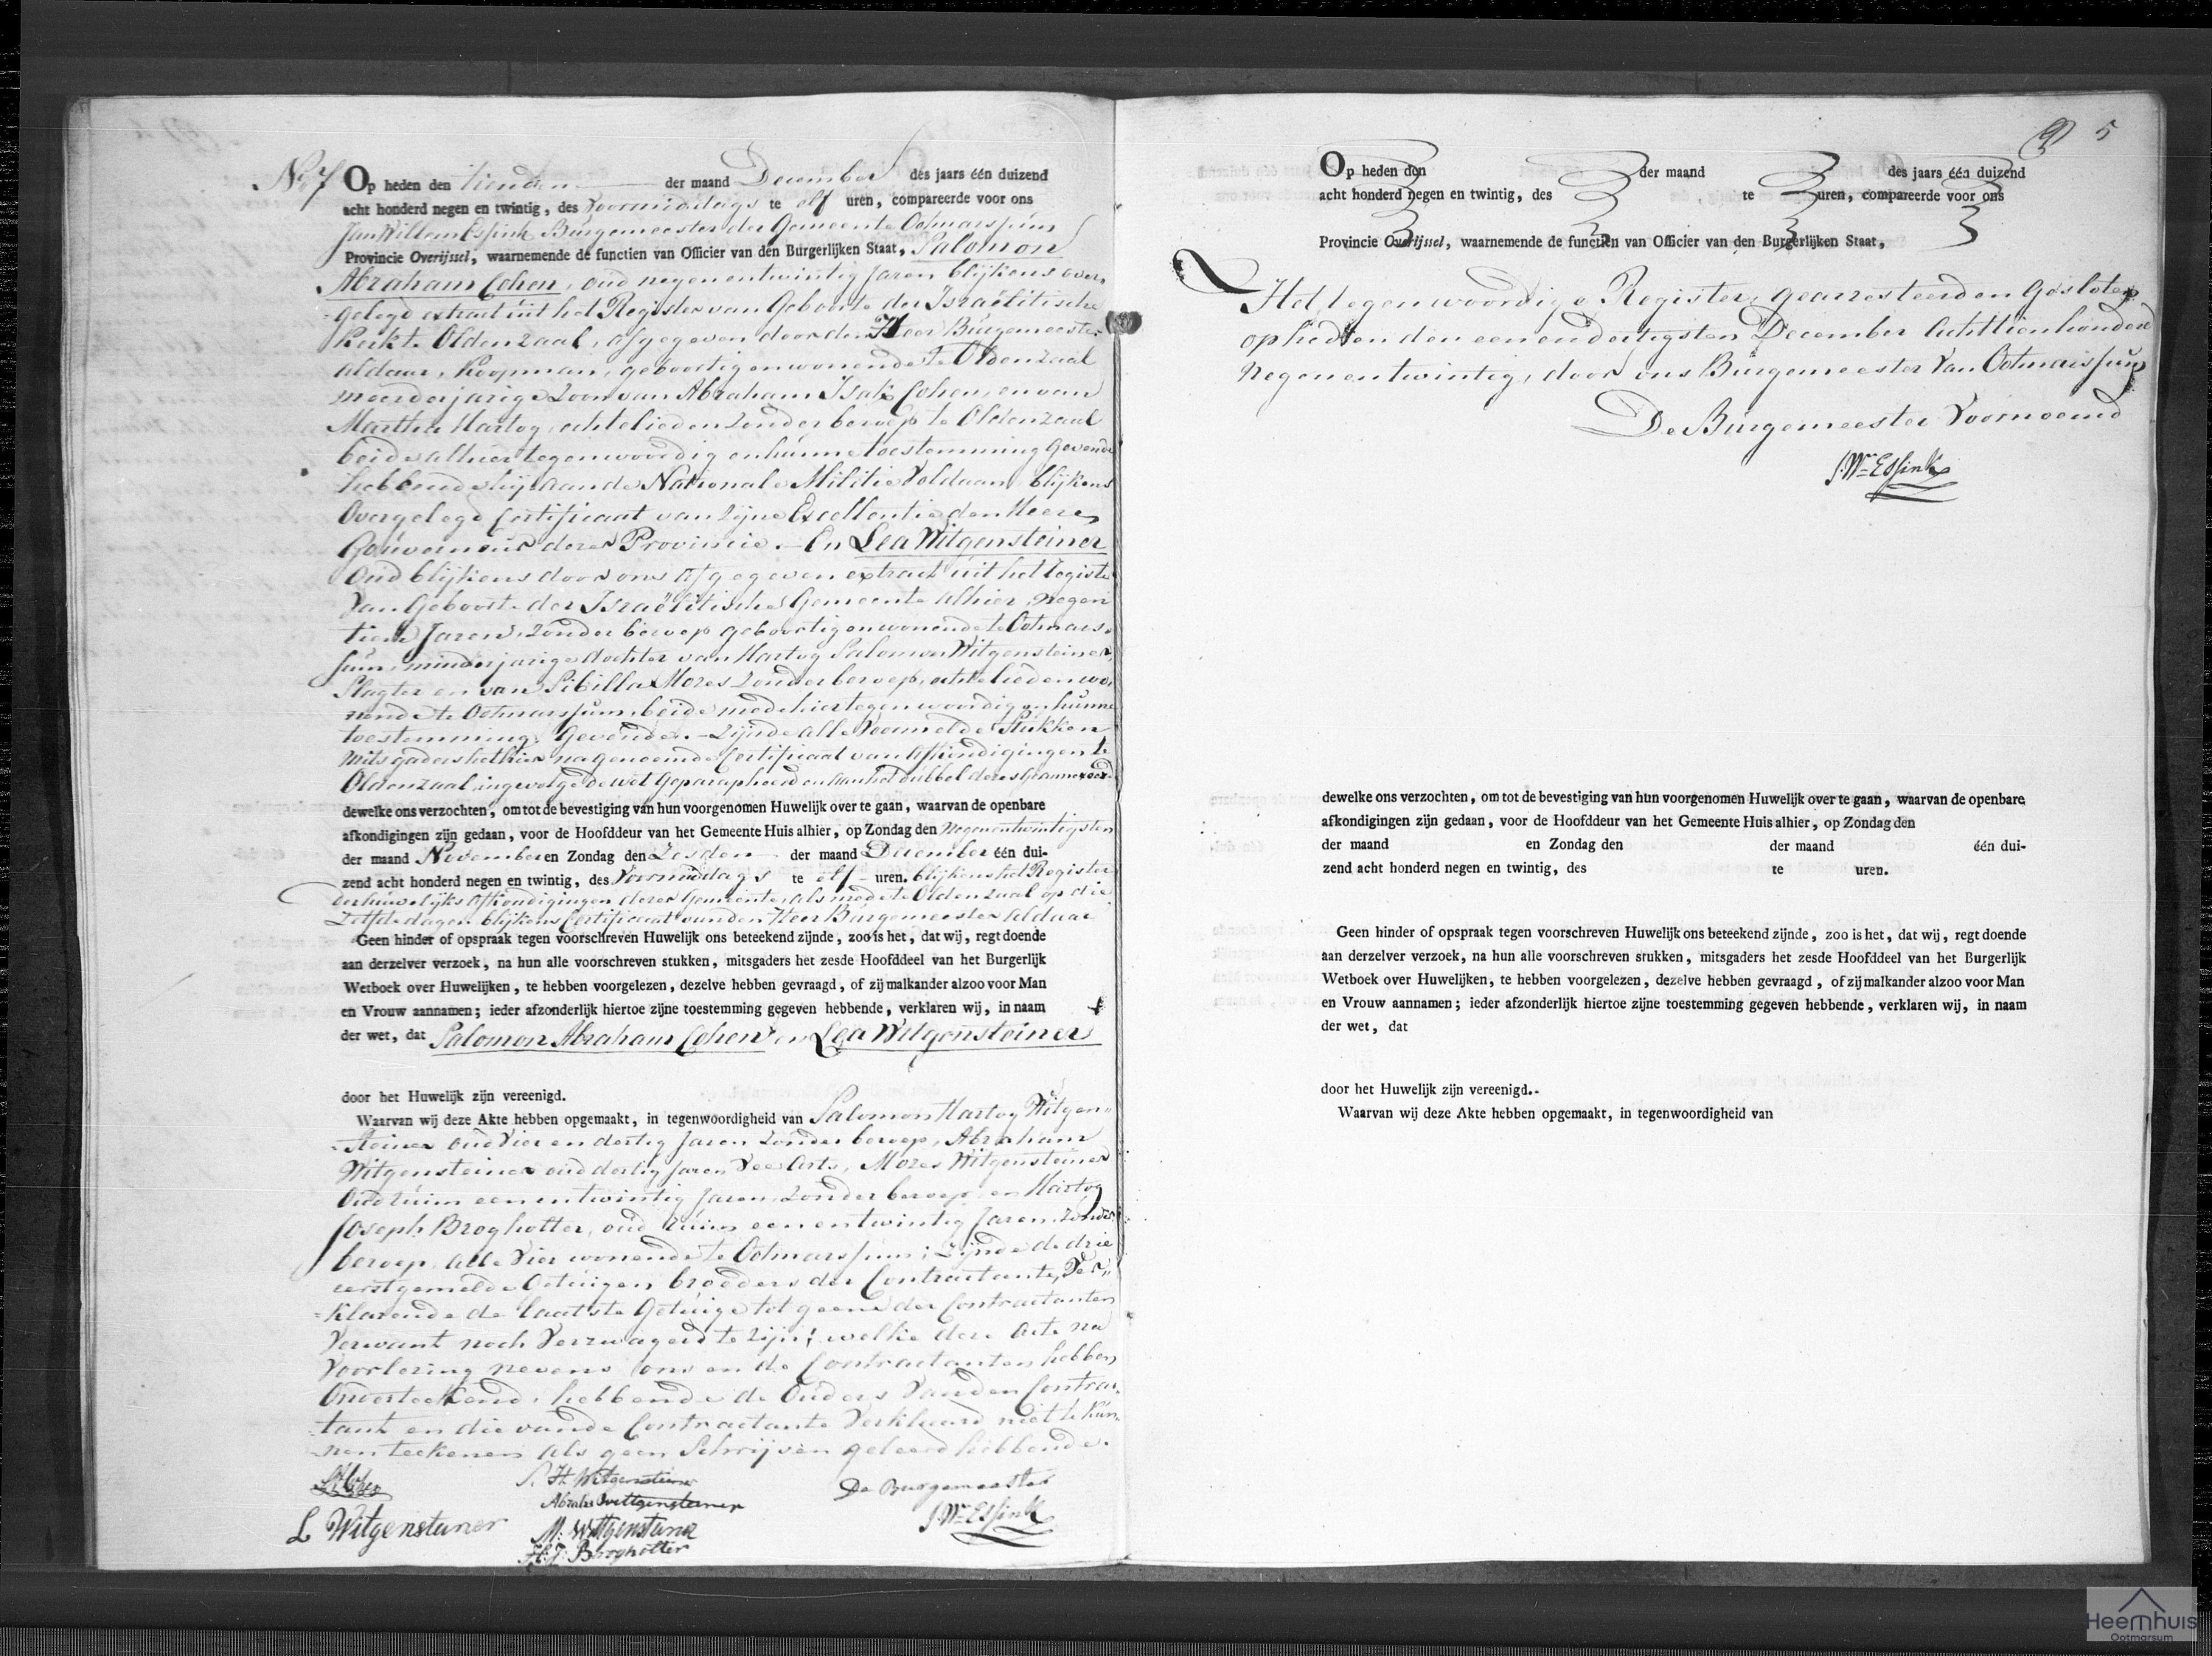 No 7 Op heden den tienden der maand December des jaars één duizend
acht honderd negen en twintig, des voormiddags te elf uren, compareerde voor ons
Jan Willem Essink Burgemeester der Gemeente Ootmarssum
Provincie Overijssel, waarnemende de functien van Officier van den Burgerlijken Staat, Salomon
Abraham Cohen, oud negenentwintig Jaren blijkens over-
gelegd extract uit het Register van Geboorte der Israëlitische
Kerk te Oldenzaal, afgegeven door den Heer Burgemeester
Aldaar, Koopman, geboortig en wonende te Oldenzaal
meerderjarige Zoon van Abraham Isak Cohen, en van
Martha Hartog, echtelieden zonder beroep te Oldenzaal
beide alhier tegenwoordig en hunne toestemming gevende
hebbende hij aan de Nationale Militie Voldaan blijkens
Overgelegd Certificaat van Zijne Excellentie den Heere
Gouverneur dezer Provincie. – En Lea Witgensteiner
Oud blijkens door ons afgegeven extract uit het registe
van Geboorte der Israëlitische Gemeente Alhier, negen
tien Jaren, zonder beroep geboortig en wonende te Ootmars-
sum, minderjarige dochter van Hartog Salomon Witgensteiner,
Slagter en van Sibilla Mozes zonder beroep, echtelieden wo-
nende te Ootmarssum, beide mede hier tegenwoordig en hunne
toestemming Gevende. – Zijnde alle Voormelde Stukken
mitsgaders het hier nagenoemde Certificaat van Afkondigingen te
Oldenzaal, ingevolge de wet Geparapheerd en aan het dubbel dezes Geannexeerd
dewelke ons verzochten, om tot de bevestiging van hun voorgenomen Huwelijk over te gaan, waarvan de openbare
afkondigingen zijn gedaan, voor de Hoofddeur van het Gemeente Huis alhier, op Zondag den Negenentwintigsten
der maand November en Zondag den Zesden der maand December één dui-
zend acht honderd negen en twintig, des Voormiddags te elf uren. blijkens het Register
der huwelijks Afkondigingen dezer Gemeente, als mede te Oldenzaal op die
Zelfde dagen blijkens Certificaat van den Heer Burgemeester Aldaar
Geen hinder of opspraak tegen voorschreven Huwelijk ons beteekend zijnde, zoo is het, dat wij, regt doende
aan derzelver verzoek, na hun alle voorschreven stukken, mitsgaders het zesde Hoofddeel van het Burgerlijk
Wetboek over Huwelijken, te hebben voorgelezen, dezelve hebben gevraagd, of zij malkander alzoo voor Man
en Vrouw aannamen; ieder afzonderlijk hiertoe zijne toestemming gegeven hebbende, verklaren wij, in naam
der wet, dat Salomon Abraham Cohen en Lea Witgensteiner
door het Huwelijk zijn vereenigd.
Waarvan wij deze Akte hebben opgemaakt, in tegenwoordigheid van Salomon Hartog Witgen-
steiner oud Vier en dertig Jaren zonder beroep, Abraham
Witgensteiner oud dertig Jaren Vee Arts, Mozes Witgensteiner
Oud ruim een en twintig Jaren, zonder beroep en Hartog
Joseph Broghotter, oud ruim een en twintig Jaren, zonder
beroep, alle Vier wonende te Ootmarssum; zijnde de drie
eerstgemelde Getuigen broeders der Contractante, Ver-
klarende de laatste Getuige tot geene der Contractanten
Verwant noch Verzwagerd te zijn; welke deze Acte na
Voorlezing nevens ons en de Contractanten hebben
Onderteekend, hebbende de Ouders Van den Contrac-
tant en die van de Contractante Verklaard niet te Kun-
nen teekenen Als geen Schrijven geleerd hebbende.
S. H. Witgensteiner
De Burgemeester
Abraha Wittgensteiner
J. Wm Essink
L Witgensteiner
M: Wittgensteiner
H: J: Broghotter
5
Op heden den der maand des jaars één duizend
acht honderd negen en twintig, des te uren, compareerde voor ons
Provincie Overijssel, waarnemende de functien van Officier van den Burgerlijken Staat,
Het tegenwoordige Register, gearresteerd en Gesloten
op heden den eenendertigsten December Achttienhonderd
Negenentwintig, door ons Burgemeester Van Ootmarssum
De Burgemeester Voornoemd
J. Wm Essink
dewelke ons verzochten, om tot de bevestiging van hun voorgenomen Huwelijk over te gaan, waarvan de openbare
afkondigingen zijn gedaan, voor de Hoofddeur van het Gemeente Huis alhier, op Zondag den
der maand en Zondag den der maand één dui-
zend acht honderd negen en twintig, des te uren.
Geen hinder of opspraak tegen voorschreven Huwelijk ons beteekend zijnde, zoo is het, dat wij, regt doende
aan derzelver verzoek, na hun alle voorschreven stukken, mitsgaders het zesde Hoofddeel van het Burgerlijk
Wetboek over Huwelijken, te hebben voorgelezen, dezelve hebben gevraagd, of zij malkander alzoo voor Man
en Vrouw aannamen; ieder afzonderlijk hiertoe zijne toestemming gegeven hebbende, verklaren wij, in naam
der wet, dat
door het Huwelijk zijn vereenigd.
Waarvan wij deze Akte hebben opgemaakt, in tegenwoordigheid van
Heemhuis
Ootmarsum